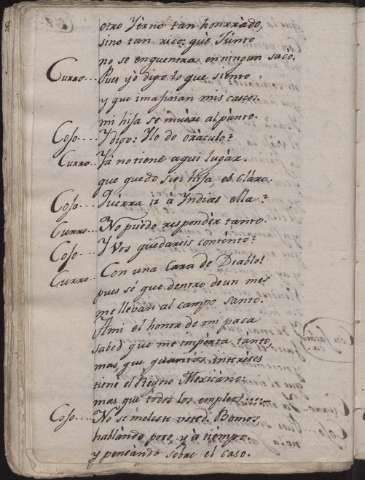 otro Yerno tan honrrado,
sino tan rico; que Junto
no se enquentra en ningun saco.
Curro... Pues yo digo lo que siento
y que imaginan mis cascos.
mi hija se muere al punto.
Coso.... Y digo: Ylo de oraculo?
Curro. Yá no tiene aqui lugár
que quedo sin hija es Claro.
Coso... Querra ir á Indias ella?
Curro.. No puedo respondér tanto.
Coso... Y Vos quedareis contento?
Curro.. Con una Cara de Diablo!
pues sé que dentro de un mes
me llevan al campo Santo.
A mi el honor de mi
sabed que me importa tanto,
mas que quantos interéses
tiene el Reyno Mexicano
mas que todos los empleos.....
Coso.. No se moleste Vsted. Bamos
hablando pero y á tiempo
y pensando sobre el caso.